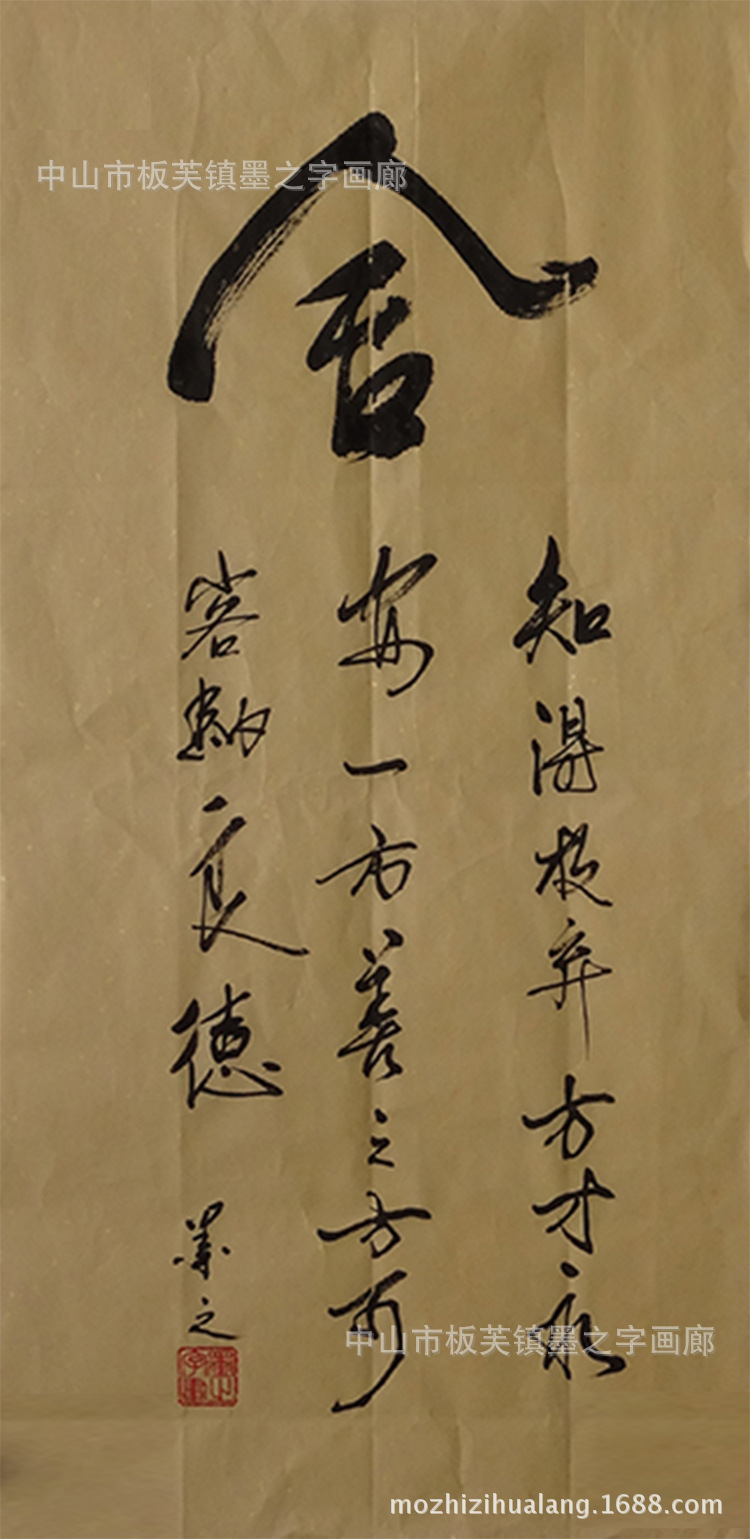 舍
知得放弃方才永
安一方善之方可
容纳良德
墨之
中山市板芙镇墨之字画廊
中山市板芙镇墨之字画廊
mozhizihualang.1688.com